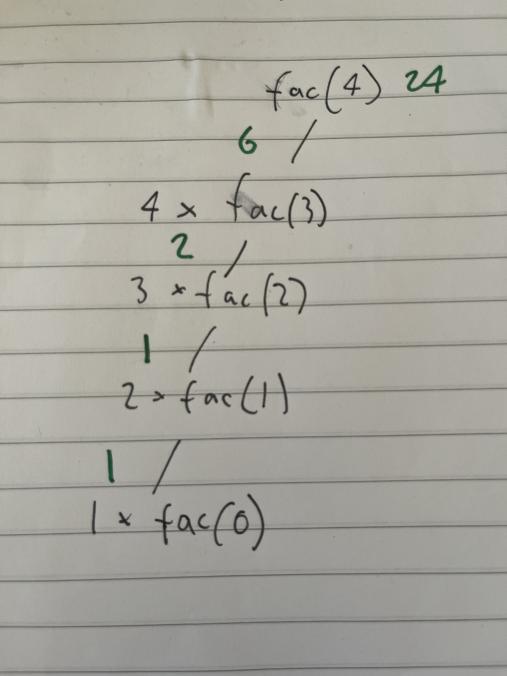 fac(4) 24
6 /
4 × fac(3)
2 /
3 × fac(2)
1 /
2 × fac(1)
1 /
1 × fac(0)